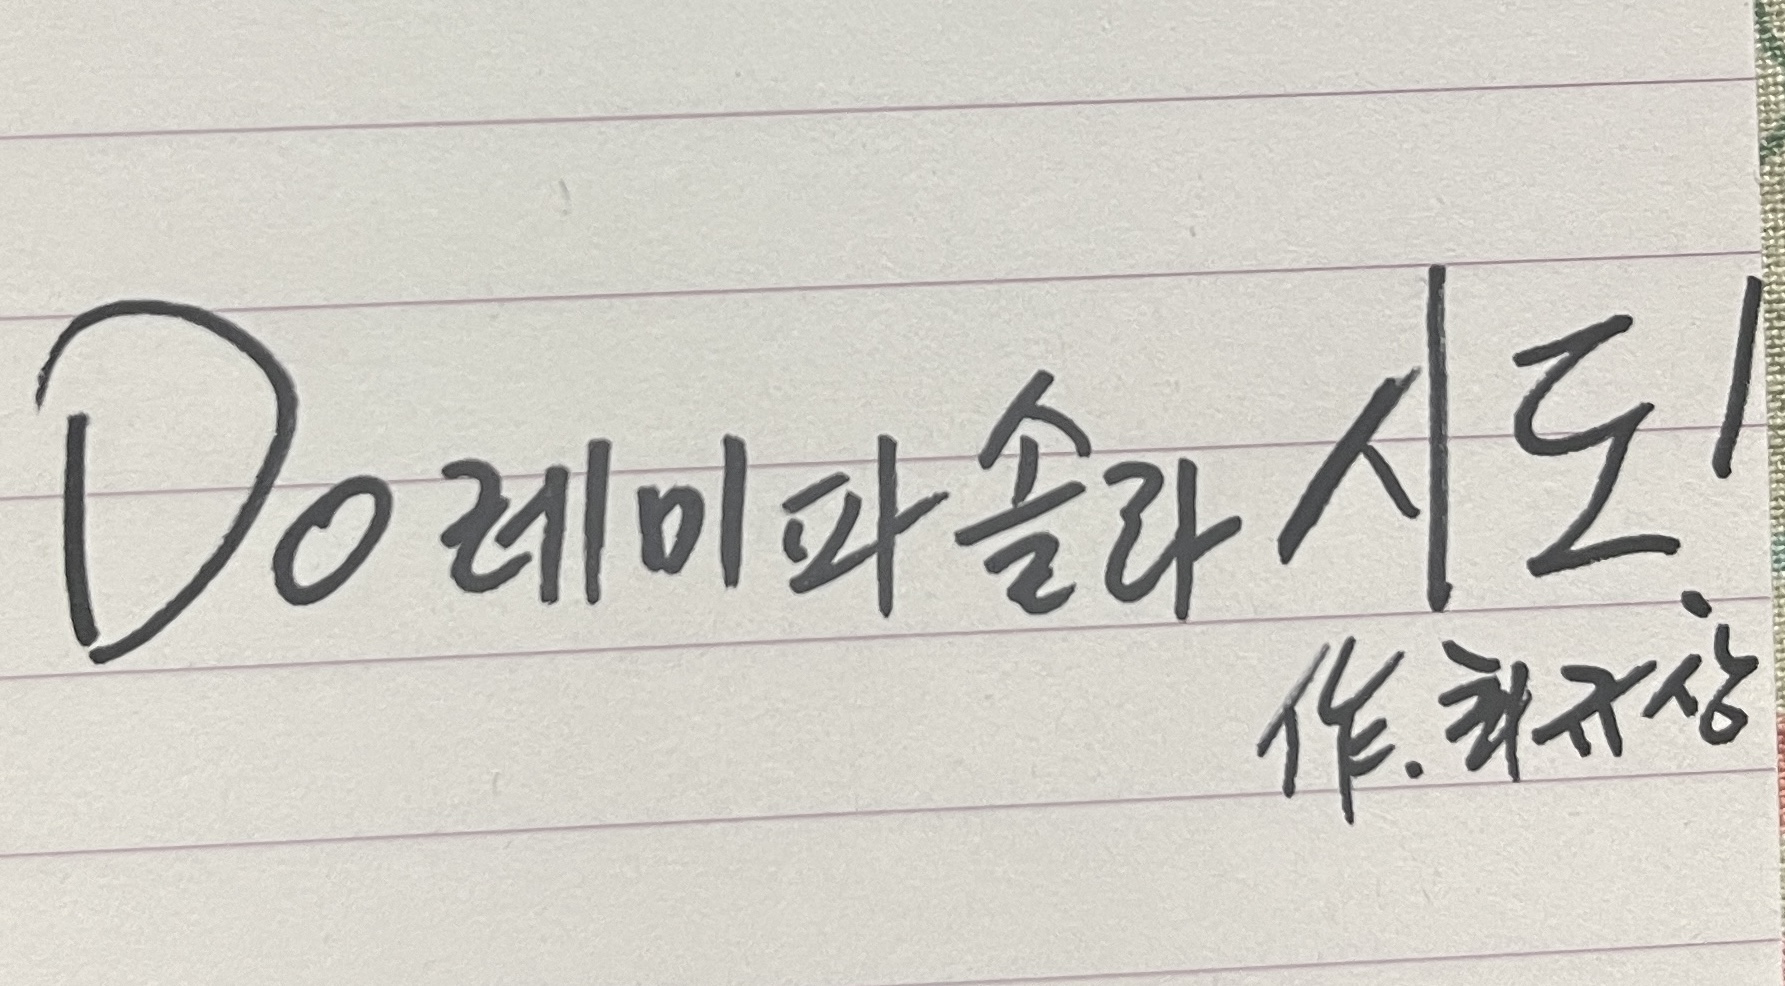 Do레미파솔라시도!
作. 최규상